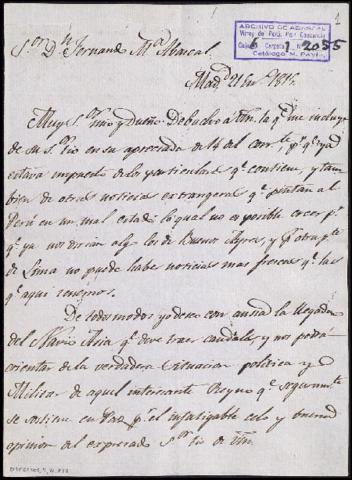 1
ARCHIVO DE ABASCAL
Virrey del Perú
6 1 2055
Catálogo
S.or D.n Fernando M.a Abascal
Mad.d 21 En.o 1815.
Muy S.or mio y Dueño: Debuelvo a Vm. la q.e me incluye
de su S.or tio en su apreciada de 14 del corr.te, p.r q.e ya
estava impuesto de los particulares q.e contiene, y tam
bien de otras noticias estrangeras q.e pintan al
Perú en un mal estado lo qual no es posible creer p.r
q.e ya nos dirian algo los de Buenos Ayres, y p.r otra p.te
de Lima no puede haber noticias mas frescas q.e las
q.e aqui tenemos.
De todos modos yo deseo con ansia la llegada
del Navio Asia q.e deve traer caudales, y nos podrá
orientar de la verdadera situacion politica y
Militar de aquel interesante Reyno q.e seguram.te
se sostiene en Paz p.r el infatigable celo y buena
opinion del expresado S.or tio de Vm.